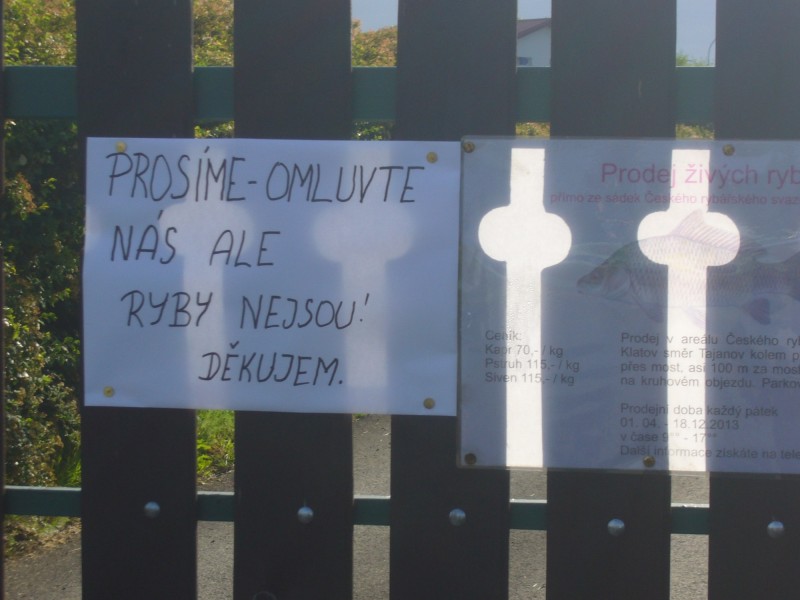 PROSÍME-OMLUVTE
NÁS ALE
RYBY NEJSOU!
DĚKUJEM.
Prodej živých ryb
přímo ze sádek Českého rybářského svaz
Ceník:
Kapr 70,- / kg
Pstruh 115,- / kg
Siven 115,- / kg
Prodej v areálu Českého ryb
Klatov směr Tajanov kolem p
přes most, asi 100 m za most
na kruhovém objezdu. Parkov
Prodejní doba každý pátek
01. 04. - 18.12.2013
v čase 9°° - 17°°
Další informace získáte na tele